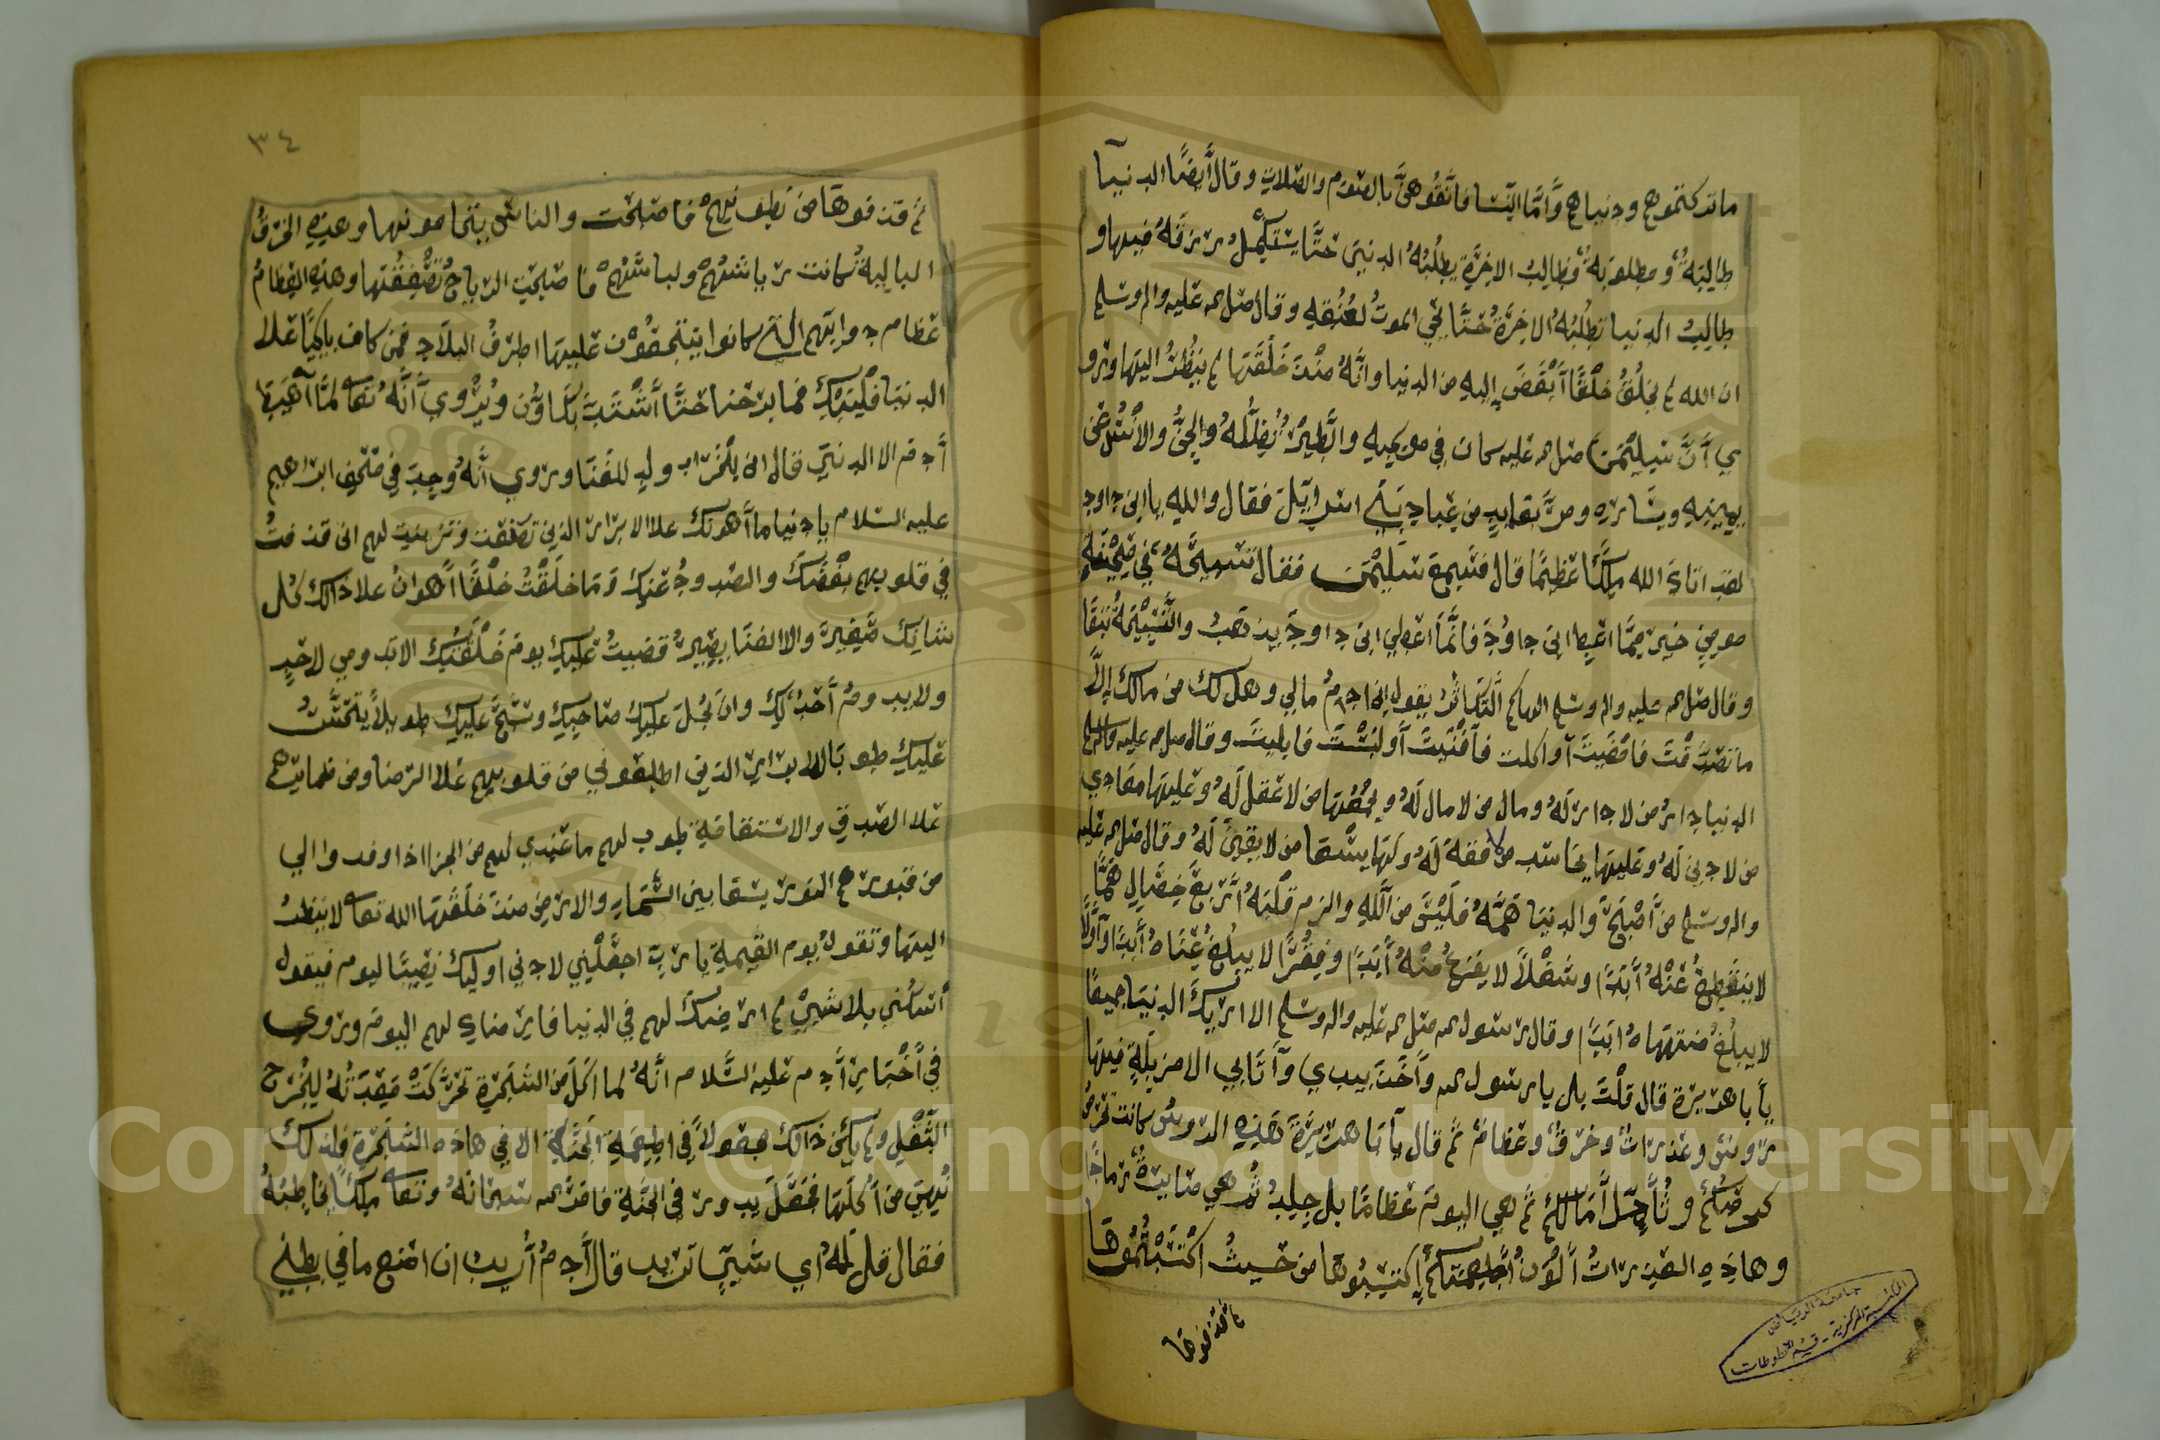 ماتدكنموهم ودنياهم وَأَمَّا النِّسَا فَاتَّقُوهُنَّ بالصَوْم والصّلاتِ وقال أَيضًا الدنيا
طالِبَةٌ ومطلوبَةٌ فطالِبُ الاخِرَةِ يطلُبُهُ الدنيَى حَتَّا يَسْتَكْمِلُ رِزقَهُ فيها و
طالِبُ الدنيا تطلُبُهُ الاخِرَةُ حَتَّا يَجِي الموتُ لعُنُقِهِ وقال صَلى الله عَليه واله وسَلم
ان الله لم يخلُقُ خلْقًا أَبْغَضَ إليهِ من الدنيا وانَّهُ مُنْذَ خَلَقَهَا لم ينْظُرُ اليها وَرو
ي أَنَّ سُليْمَن صَلى الله عليه كان في موكِبِهِ والطّيرُ تُظِلُّهُ والجِنُّ والأِنْسُ عن
يمينِهِ ويسَارِهِ ومرَّ بعَابِدٍ من عُبادِ بَنِي اسْرَاءِيلَ فقال واللهِ ياابن داود
لقد اتاكَ الله مِلْكًا عَظِيْمًا قال فسَمِعَ سَليْمَن فقال تسبيحَةٌ في صَحِيْفَةِ
مومِنٍ خيرٌ مِمَّا اعْطِيَ ابن داوُدَ فانَّمَا اعْطِي ابن داودَ يذهَبُ والتَّسْبِيْحَةُ تبقَا
وقال صَلى الله عليه واله وسَلم الهاكم التَّكَاثُرُ يقول ابن ادم مالي وهل لك من مالك إلاَّ
ما تصَدَّقْتَ فامْضَيْتَ أواكلت فأفنيتَ أَولَبِسْتَ فابليتَ وقال صلى الله عليه واله وسلم
الدنيا دارُ من لا دار لَهُ ومال من لا مال لَهُ ويَجْمَعُهَا من لا عَقلَ لَهُ وعَليهَا معَادي
من لا دِينَ لَهُ وعَليها يحَاسد من لا فقهَ لَهُ ولهَا يسْعَا من لا يقينَ لَهُ وقال صَلى الله عليه
واله وسَلم من أَصْبَحَ والدنيَا هَمَّهُ فليْسَ من اللهِ والزم قلْبَهُ أَرْبَعَ خِصَالٍ هَمًّا
لا ينقطِعُ عَنْهُ أَبَدًا وشغْلاً لا يفرَغُ مِنْهُ أَبَدًا وفقْرًا لا يبلُغُ غِنَاهُ أَبَدًا وأَمَلًا
لا يبلُغُ منتهَاهُ ابَدًا وقال رَسُول الله صَلى الله عَليه واله وسَلم الا اريْكَ الدنيَا جميعًا
يأَبا هرَيرَة قال قلْتُ بلى يا رسُول الله وأَخَذَ بيدي وأَتَا بي الا مزبَلَةٍ فيها
رؤوسٌ وعذِرَاتٌ وخِرَقٌ وعِظامٌ ثم قال يأَبَا هرَيرَةَ هَذِهِ الرؤوسُ كانت تحرصُ
كحرصِكُم وتَأْمَلُ أَمَالَكُم ثم هي اليومَ عظَامًا بل جِلدٌ ثُم هي صَايرَةٌ رَمادًا
وهاذِهِ العَذِرَاتُ أَلْوَنُ أَطعِمَتِكُم إكتَسَبُوهَا من حَيثُ اكْتَسَبْتُمُوهَا
ثم قذفوهَا
٣٤
ثم قذفوهَا من بُطونِهِمْ فاصْبَحَت والناسُ يتحامونها وهذِهِ الخِرَقُ
الباليةُ كانت رِياشَهُمْ ولباسَهُمْ فاصْبَحَتِ الرياحُ تُصَفِّقُهَا وهَذِهِ العِظَامُ
عظام دوابِّهِم التي كانوا ينتجِعُوْن عَليهَا اطرَافَ البلَادِ فمَن كان باكيًا عَلا
الدنيَا فلْيَبْكِ فمابرحنا حَتَّا اشْتَدَّ بكَاونا ويُرْوي أَنَّهُ تعالى لمَّا أَهبَطَ
أَدمَ الا الدنيَى قال ابن للخَرَاب ولِد للفَنَا ورُوي أَنَّهُ وُجِدَ في صُحُفِ ابرَاهِيم
عليه السَلام يا دنيا ما أَهوَنَك علا الابرَار الذين تصَنَّعْتِ وتزينتِ لهم انى قذفتُ
في قلوبِهم بُغْضَكِ والصَد وُدَعَنكِ وَمَا خلَقْتُ خلْقًا أَهوَانُ علا ذالك كُل
شانِكِ صَغيرَ والا الفنَا يصيرُ قضيتُ عَليكِ يومَ خَلَقْتُكِ الا تدومي لاحَدٍ
ولا يدومُ أَحَدٌ لكِ وان بَخُلَ عَليكِ صَاحِبكِ وشَحَّ عليكِ طوبَا
عَليكِ طوبَا للابرَارِ الذين اطلعُوني من قلوبهم عَلا الرضَا ومن ضمايرهم
عَلا الصّدقِ والاسْتقامَةِ طوبَ لهم ماعِندي لهم من الجزا اذا وفدوا الي
من قبورهم النور يسْعَا بين السَّمَاء والارضِ منذ خَلَقَها الله تعالى لا ينظُرُ
اليها وتقولُ يوم القيمةِ يا ربّ اجعَلْنِي لادني اوليَايكَ نصِيبًا ليوم فيقول
أسكني يلا شيْ لم ارضكِ لهم في الدنيا فارضاكِ لهم اليومَ ورُوى
في أَخْبَارِ أَدم عَليه السَّلام انَّهُ لما اكلَ من الشجرَةِ تحرَّكَتْ مَعِدَتُهُ ليُخْرج
الثّفْلِ ولم يكن ذالكَ مجعُولاً في اطعِمَةِ الجَنَّةِ الا في هاذِه الشّجَرَةِ فلذلك
نُهِيَ من اكلهَا فجَعَلَ يدور في الجنَّةِ فامَرَ الله سُبحَانَهُ وتعالى مَلَكًا يخاطِبُهُ
فقال قل لَهُ أي شَيٍّ تريد قال أَدمُ أُريدُ ان اضَعَ ما في بطني
جامعة الرياض
المكتبة المركزية - قسم المخطوطات
Copyright © King Saud University